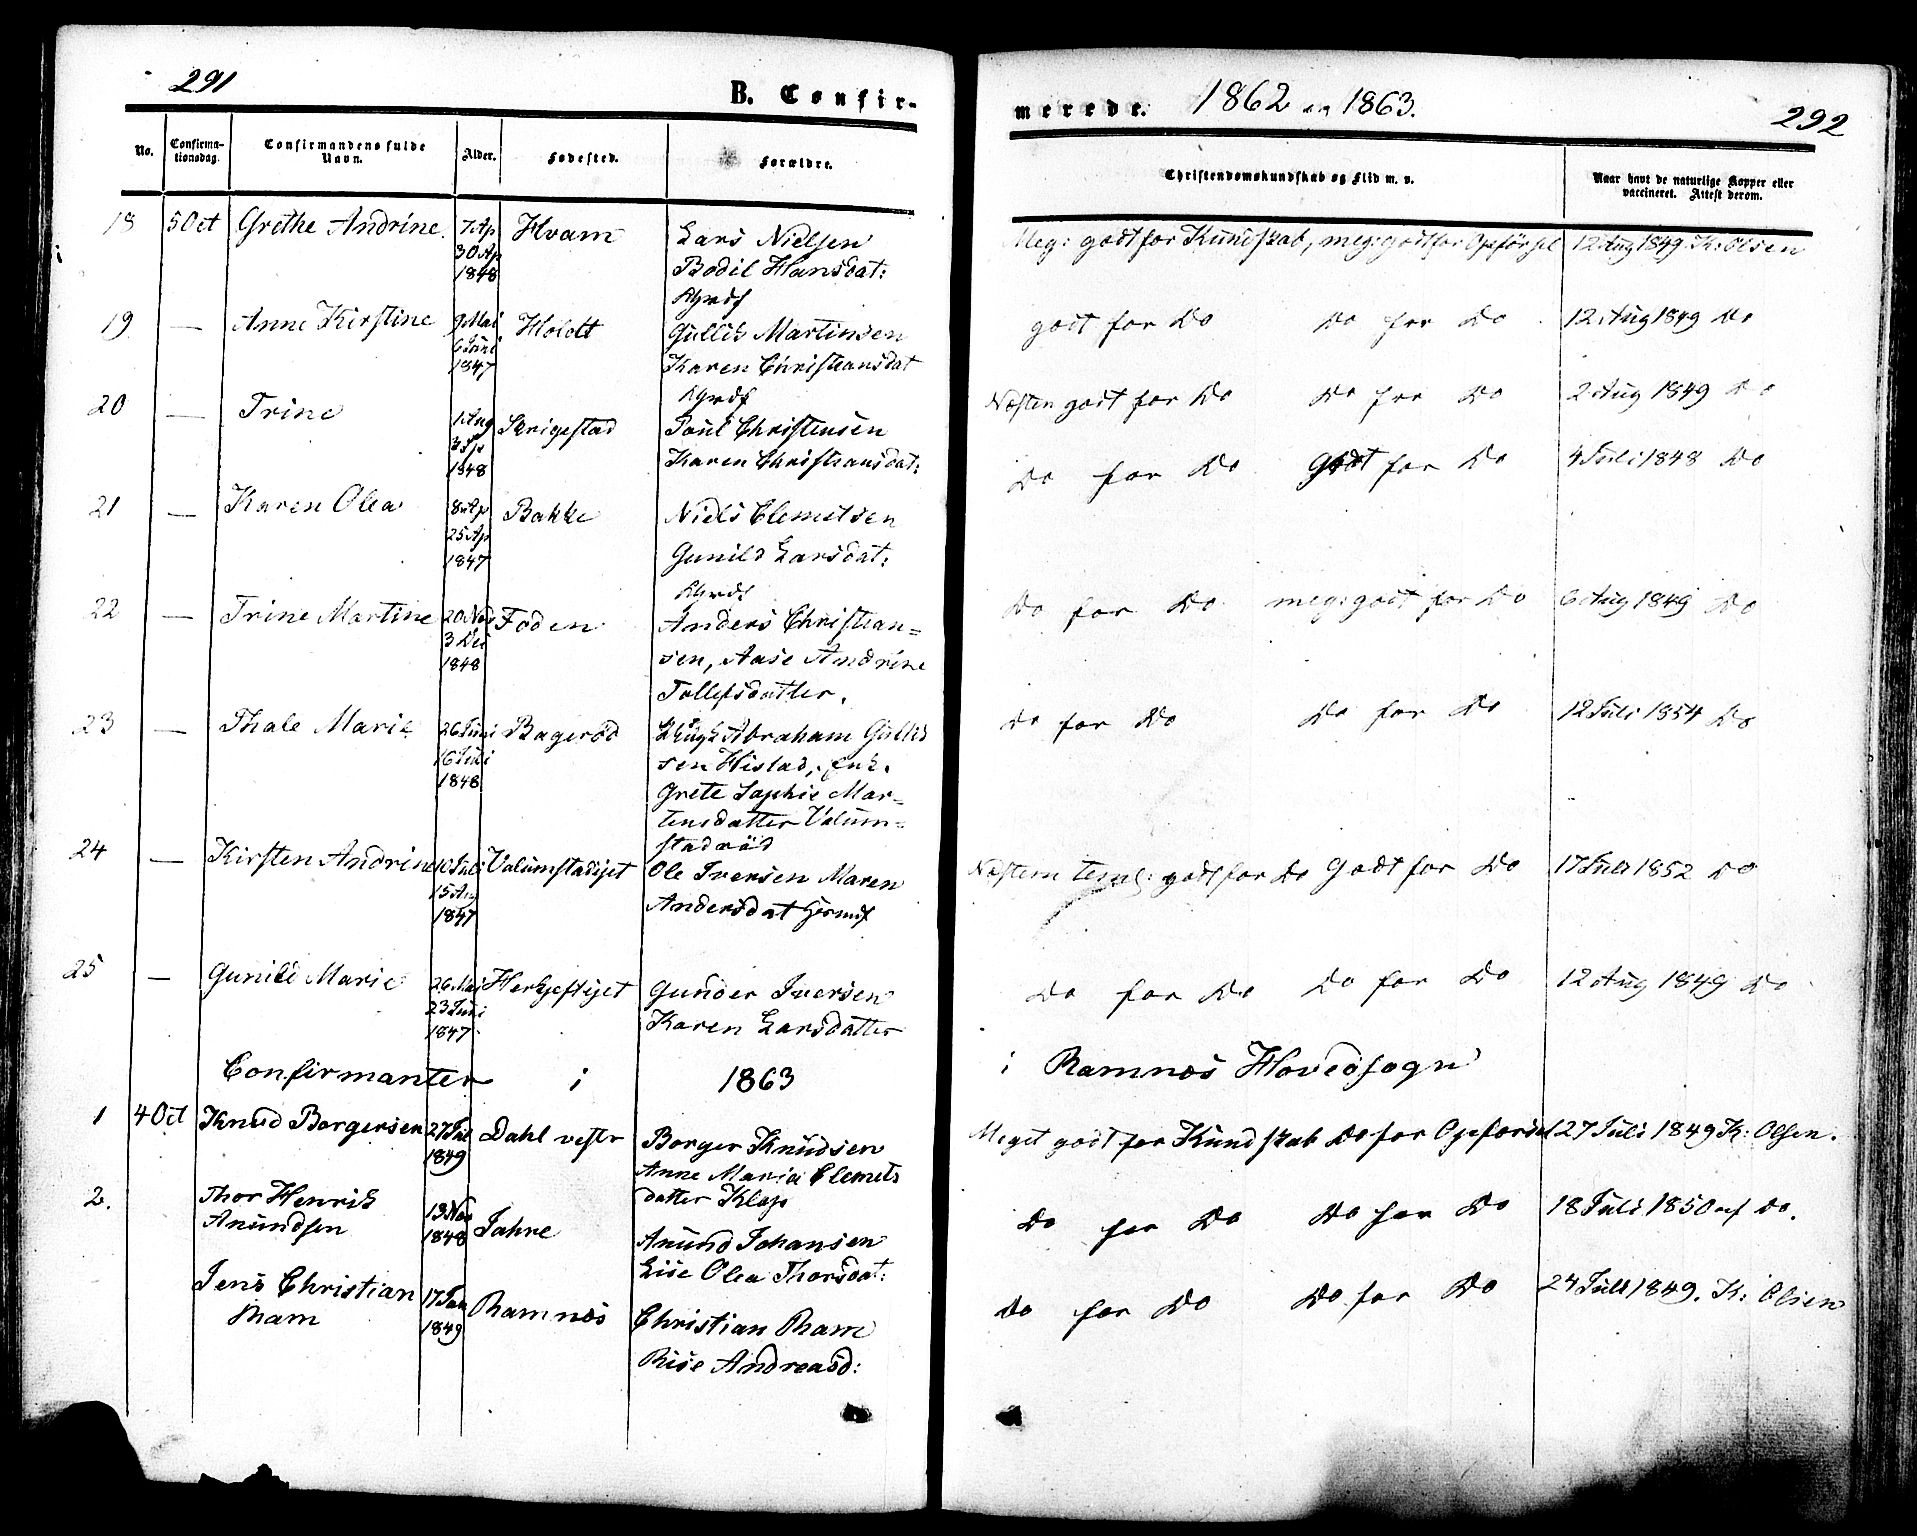 291
B. Confir-
No.
Confirma-
tionsdag.
Confirmandens fulde
Navn.
Alder.
Fødested.
Forældre.
18 5 Oct Grethe Andrine 7 Ap Hvam Lars Nielsen
30 Ap
1848 Bodil Hansdat:
19 — Anne Kirstine 9 Mai Holdt Gullik Martinsen
6 Juni
1847 Karen Christiansdat
20 — Trine 1 Aug Skrigestad Poul Christensen
1848 Karen Christiansdat:
21 — Karen Olea 8 Ap Bakke Niels Clemetsen
25 Ap
1847 Gunild Larsdat:
22 — Trine Martine 20 Nov Foden Anders Christian=
3 Dec
1848 sen, Aase Andrine
Tollefsdatter.
23 — Thale Marie 26 Juni Bagerød Abraham Gullid
16 Juli sen Histad,
1848 Grete Sophie Mar=
tensdatter Valum=
stadrød
24 — Kirsten Andrine Juli Valumstadejet Ole Iversen Maren
15 Aug Andersdat
1847
25 — Gunild Marie 26 Mai Herkjestjet Gunder Iversen
23 Juni
1847 Karen Larsdatter
Confirmanter i 1863
1 4 Oct Knud Borgersen 27 Jul Dahl vestr Borger Knudsen
1849 Anne Maria Clemets
datter Klop
2. Thor Henrik 13 Nov Jahre Anund Johansen
Anundsen 1848 Lise Olea Thorsdat:
Jens Christian 17 Jan Ramnæs Christian Ram
Ram 1849 Rise Andreasd:
merede. 1862 og 1863.
292
Christendomskundskab og Flid m. v.
Naar havt de naturlige Kopper eller
vaccineret. Attest derom.
Meg: godt for Kundskab, meg: godt for Opførsel 12 Aug 1849 K: Olsen
godt for Do Do for Do 12 Aug 1849 Do
Næsten godt for Do Do for Do 2 Aug 1849 Do
Do for Do Godt for Do 4 Juli 1848 Do
Do for Do meg: godt for Do 6 Aug 1849 Do
Do for Do Do for Do 12 Juli 1854 Do
Næsten temel: godt for Do Godt for Do 17 Juli 1852 Do
Do for Do Do for Do 12 Aug 1849 Do
i Ramnæs Hovedsogn
Meget godt for Kundskab Do for Opførsel 27 Juli 1849 K: Olsen.
Do for Do Do for Do 18 Juli 1850 af Do.
Do for Do Do for Do 24 Juli 1849. K: Olsen